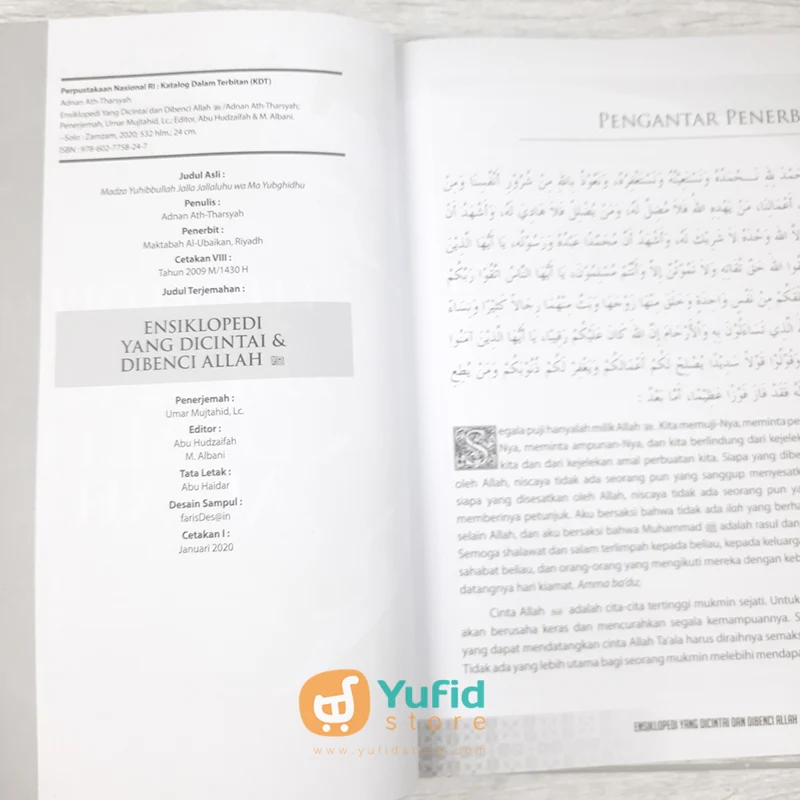 Perpustakaan Nasional RI : Katalog Dalam Terbitan (KDT)
Adnan Ath-Tharsyah
Ensiklopedi Yang Dicintai dan Dibenci Allah ﷻ /Adnan Ath-Tharsyah;
Penerjemah, Umar Mujtahid, Lc.; Editor, Abu Hudzaifah & M. Albani.
--Solo : Zamzam, 2020; 532 hlm.; 24 cm.
ISBN : 978-602-7758-24-7
Judul Asli :
Madza Yuhibbullah Jalla Jallaluhu wa Ma Yubghidhu
Penulis :
Adnan Ath-Tharsyah
Penerbit :
Maktabah Al-Ubaikan, Riyadh
Cetakan VIII :
Tahun 2009 M/1430 H
Judul Terjemahan :
ENSIKLOPEDI
YANG DICINTAI &
DIBENCI ALLAH ﷻ
Penerjemah :
Umar Mujtahid, Lc.
Editor :
Abu Hudzaifah
M. Albani
Tata Letak :
Abu Haidar
Desain Sampul :
farisDes@in
Cetakan I :
Januari 2020
PENGANTAR PENERB
حَمْدَ لِلَّهِ نَحْمَدُهُ وَنَسْتَعِيْنُهُ وَنَسْتَغْفِرُهُ، وَنَعُوْذُ بِاللهِ مِنْ شُرُوْرِ أَنْفُسِنَا وَمِنْ
أَعْمَالِنَا، مَنْ يَهْدِهِ اللهُ فَلَا مُضِلَّ لَهُ، وَمَنْ يُضْلِلْ فَلَا هَادِيَ لَهُ، وَأَشْهَدُ أَنْ
لَّا اللهُ وَحْدَهُ لَا شَرِيْكَ لَهُ، وَأَشْهَدُ أَنَّ مُحَمَّدًا عَبْدُهُ وَرَسُوْلُهُ، يَا أَيُّهَا الَّذِيْنَ
قُوا اللهَ حَقَّ تُقَاتِهِ وَلَا تَمُوْتُنَّ إِلَّا وَأَنْتُمْ مُسْلِمُوْنَ، يَا أَيُّهَا النَّاسُ اتَّقُوْا رَبَّكُمُ
لَقَكُمْ مِنْ نَفْسٍ وَاحِدَةٍ وَخَلَقَ مِنْهَا زَوْجَهَا وَبَثَّ مِنْهُمَا رِجَالًا كَثِيْرًا وَنِسَاءً
الَّذِي تَسَاءَلُوْنَ بِهِ وَالْأَرْحَامَ إِنَّ اللهَ كَانَ عَلَيْكُمْ رَقِيْبًا، يَا أَيُّهَا الَّذِيْنَ آمَنُوا
وَقُوْلُوْا قَوْلًا سَدِيْدًا يُصْلِحْ لَكُمْ أَعْمَالَكُمْ وَيَغْفِرْ لَكُمْ ذُنُوْبَكُمْ وَمَنْ يُطِعِ
لَهُ فَقَدْ فَازَ فَوْزًا عَظِيْمًا، أَمَّا بَعْدُ :
Segala puji hanyalah milik Allah ﷻ. Kita memuji-Nya, meminta pe
Nya, meminta ampunan-Nya, dan kita berlindung dari kejelek
kita dan dari kejelekan amal perbuatan kita. Siapa yang dibe
oleh Allah, niscaya tidak ada seorang pun yang sanggup menyesatk
siapa yang disesatkan oleh Allah, niscaya tidak ada seorang pun ya
memberinya petunjuk. Aku bersaksi bahwa tidak ada ilah yang berha
selain Allah, dan aku bersaksi bahwa Muhammad ﷺ adalah rasul dan
Semoga shalawat dan salam terlimpah kepada beliau, kepada keluarga
sahabat beliau, dan orang-orang yang mengikuti mereka dengan keb
datangnya hari kiamat. Amma ba'du;
Cinta Allah ﷻ adalah cita-cita tertinggi mukmin sejati. Untuk
akan berusaha keras dan mencurahkan segala kemampuannya. S
yang dapat mendatangkan cinta Allah Ta'ala harus diraihnya semaks
Tidak ada yang lebih utama bagi seorang mukmin melebihi mendapa
ENSIKLOPEDI YANG DICINTAI DAN DIBENCI ALLAH
Yufid
store
www.yufidstore.com